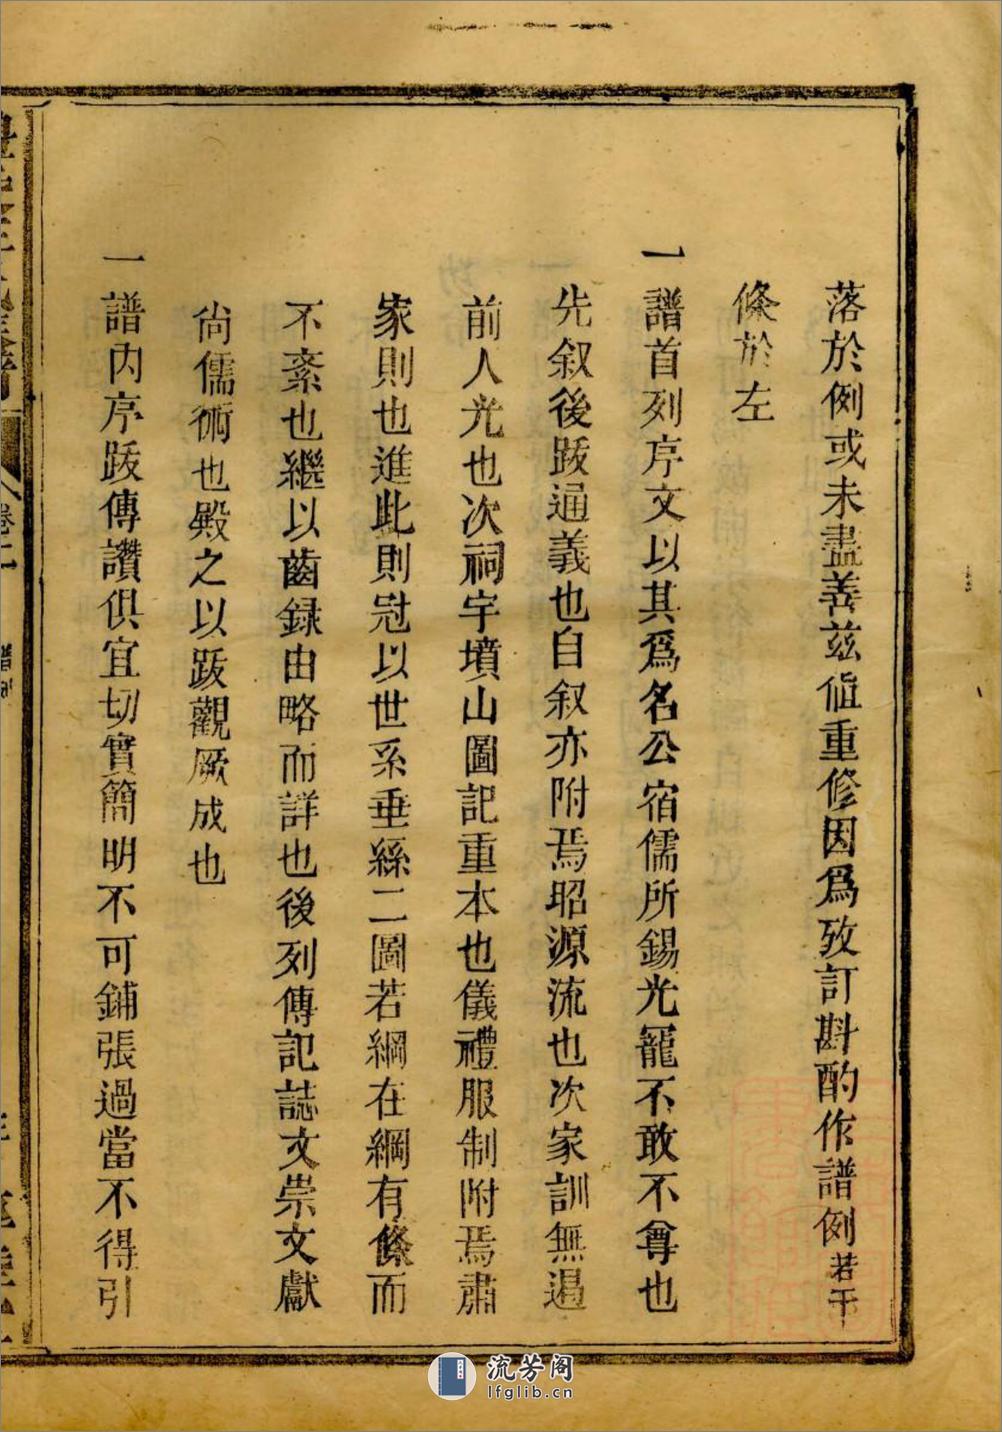 落於例或未盡善茲值重修因爲攷訂斟酌作譜例若干
條於左
一譜首列序文以其爲名公宿儒所錫光寵不敢不尊也
先叙後跋通義也自叙亦附焉昭源流也次家訓無遏
前人光也次祠宇墳山圖記重本也儀禮服制附焉肅
家則也進此則冠以世系垂絲二圖若綱在綱有條而
不紊也繼以齒録由略而詳也後列傳記誌文崇文獻
尙儒術也殿之以跋觀厥成也
一譜內序跋傳讚俱宜切實簡明不可鋪張過當不得引
卷二
流芳阁
lfglib.cn